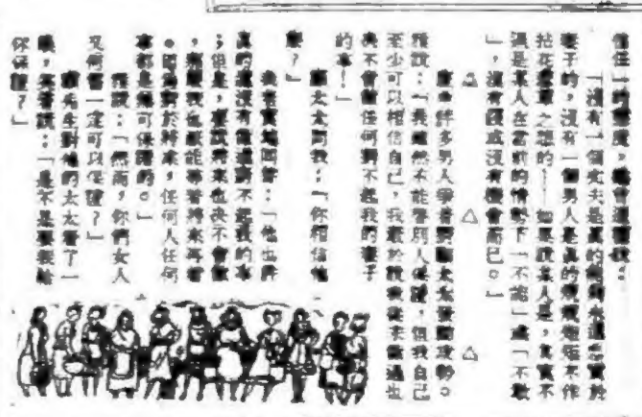 信任一的態度，總會這樣說：
「沒有一個丈夫是真的能夠永遠忠實於
妻子的，沒有一個男人是真的規規矩矩不作
拈花惹草之想的——如果說某人是，其實不
過是某人在當前的情勢下「不能」或「不敢
」，沒有錢或沒有機會而已。」
△ △ △
許多男人爭着對顧太太發動攻勢。
說：「我雖然不能替別人保證，但我自己
至少可以相信自己，我敢於說我從來沒過也
決不會做任何對不起我的妻子
的事！」
顧太太問我：「你相信他
麼？」
我老實地回答：「他也許
真的還沒有做過對不起我的事
；但是，要說將來也決不會做
，那麼我也只能等着將來再看
。因為對於將來，任何人任何
事都是無可保證的。」
說：「然而，你們女人
又何嘗一定可以保證？」
顧先生對他的太太看了一
眼，笑着說：「是不是要我給
你保證？」